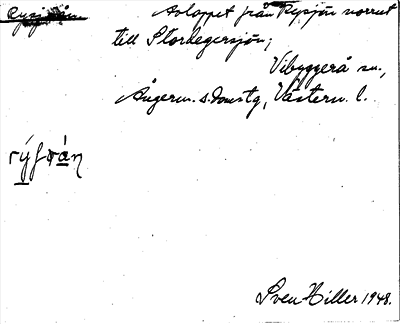 Avloppet från Rysjön norrut
till Stordegersjön;
Vibyggerå sn.,
Ångerm. s. domstg, Västern. l.
Sven Hiller 1948.